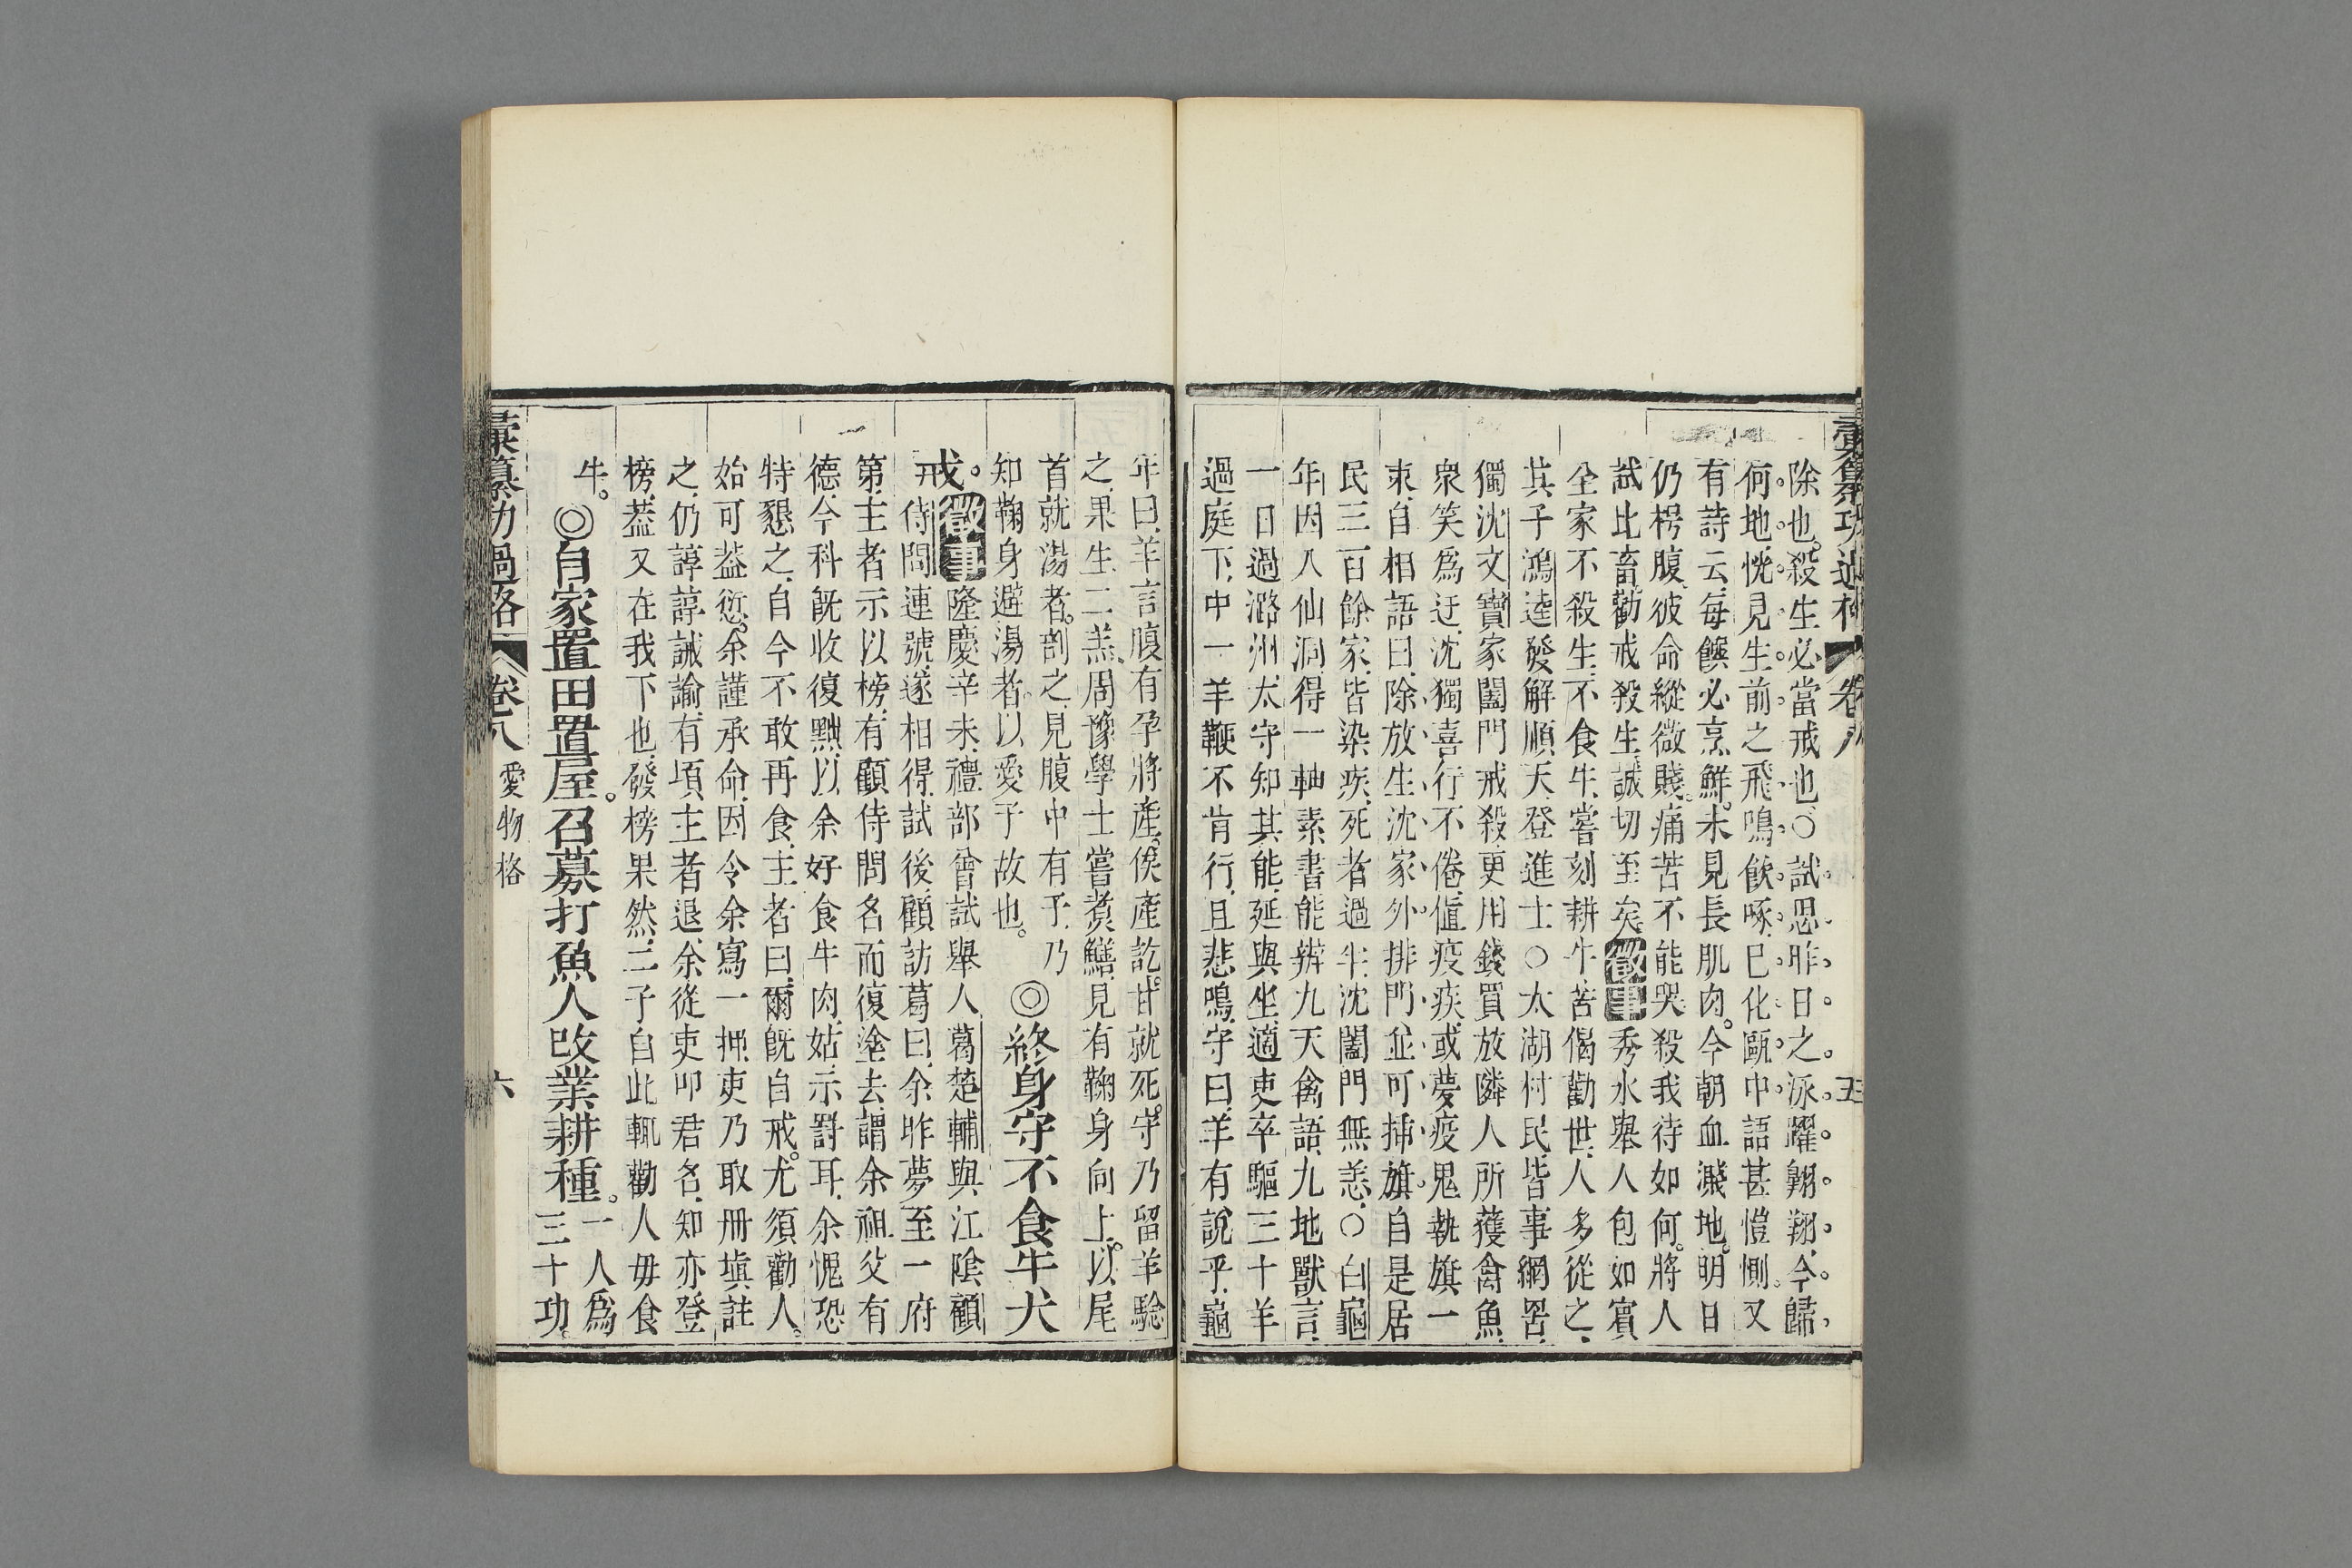 彙纂功過格 卷八 五
除也。殺生必當戒也○試思昨日之泳躍翱翔、今歸
何地、恍見生前之飛鳴飲啄、已化甌中語甚愷惻。又
有詩云、每饌必烹鮮。未見長肌肉。今朝血濺地。明日
仍枵腹。彼命縱微賤。痛苦不能哭。殺我待如何。將人
試比畜。勸戒殺生、誠切至矣。徵事秀水舉人包如賓
全家不殺生、不食牛、嘗刻耕牛苦偈勸世、人多從之、
其子鴻逵發解順天、登進士○太湖村民、皆事網罟、
獨沈文寶家闔門戒殺、更用錢買放隣人所獲禽魚、
衆笑爲迂、沈獨喜行不倦、値疫疾、或夢疫鬼執旗一
束、自相語曰、除放生沈家外、排門並可揷旗、自是居
民三百餘家、皆染疾、死者過半、沈闔門無恙、○白龜
年因入仙洞得一軸素書、能辨九天禽語、九地獸言、
一日過潞州、太守知其能、延與坐、適吏卒驅三十羊
過庭下、中一羊鞭不肯行、且悲鳴、守曰、羊有說乎、龜
年曰、羊言腹有孕將產。俟產訖。甘就死。守乃留羊驗
之、果生二羔、周豫學士嘗煑鱔、見有鞠身向上。以尾
首就湯者。剖之、見腹中有子、乃
知鞠身避湯者、以愛子故也。
◎終身守不食牛犬
戒。徵事隆慶辛未、禮部會試舉人、葛楚輔與江陰顧
侍問連號、遂相得、試後、顧訪葛曰、余昨夢至一府
第、主者示以榜、有顧侍問名而復塗去、謂余祖父有
德、今科旣收復黜、以余好食牛肉、姑示罸耳、余愧恐
特懇之、自今不敢再食、主者曰、爾旣自戒。尤須勸人。
始可蓋愆。余謹承命、因令余寫一押、吏乃取册塡註
之、仍諄諄誡諭、有頃、主者退、余從吏叩君名、知亦登
榜、葢又在我下也、發榜果然、二子自此輒勸人毋食
牛。
◎自家置田置屋。召募打魚人改業耕種。一人爲
三十功。
彙纂功過格 卷八 愛物格 六